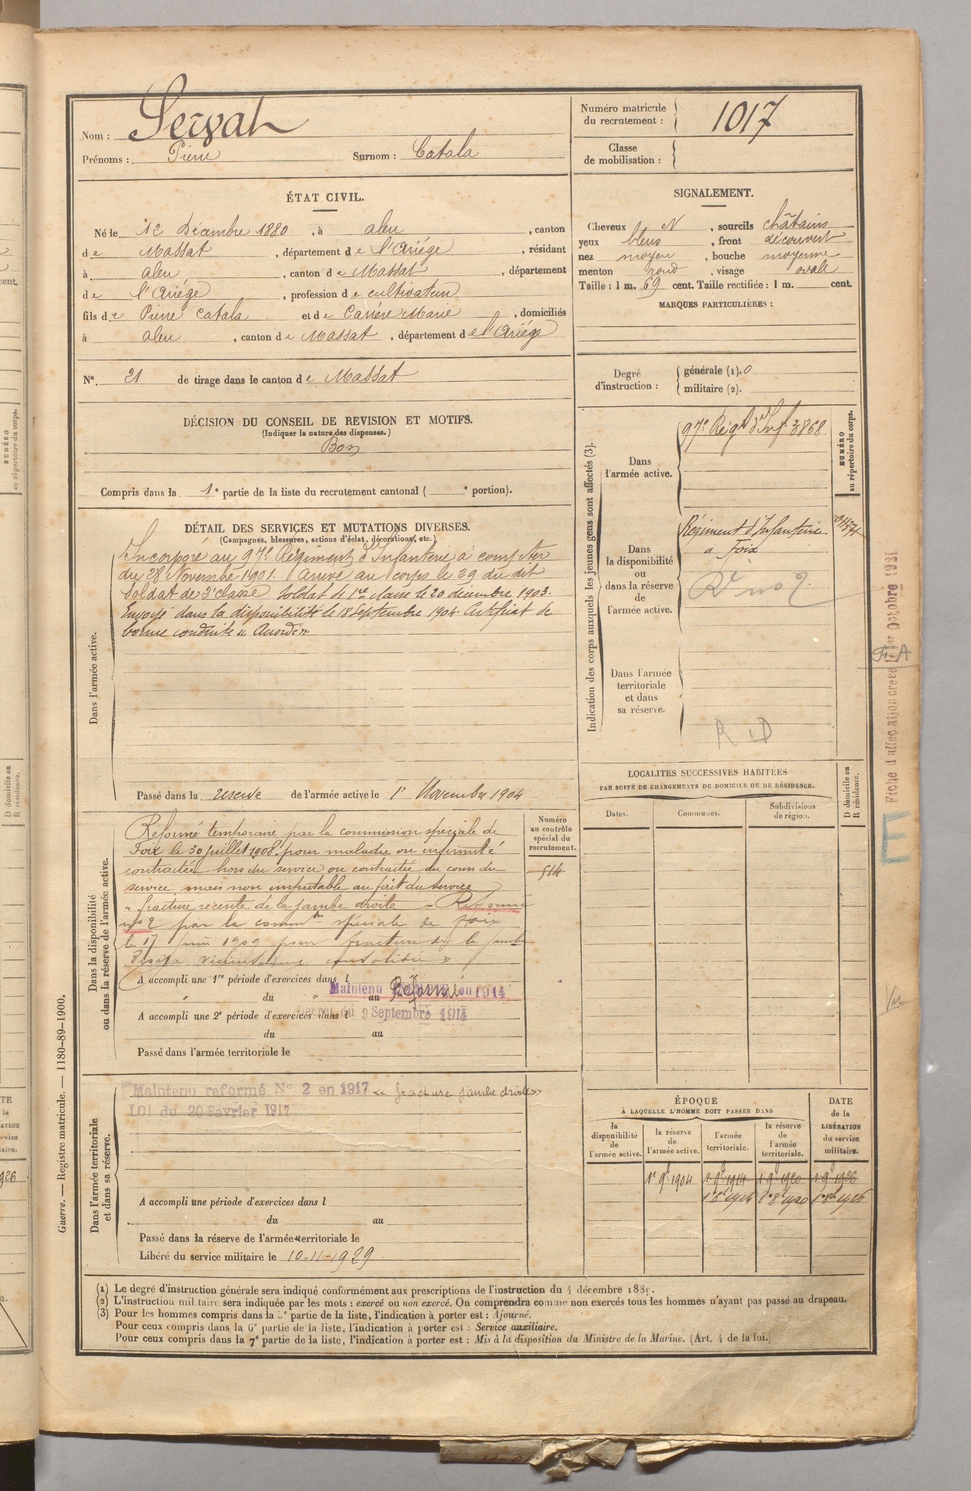 Nom : Servat
Prénoms : Pierre Surnom : Catala
Numéro matricule du recrutement : 1017
Classe de mobilisation :
ÉTAT CIVIL.
Né le 12 Décembre 1880, à Aleu, canton
de Massat, département de l'Ariège, résidant
à Aleu, canton de Massat, département
de l'Ariège, profession de cultivateur
fils de Pierre Catala et de Carrère Marie, domiciliés
à Aleu, canton de Massat, département de l'Ariège
N° 21 de tirage dans le canton de Massat
SIGNALEMENT.
Cheveux N, sourcils châtains
yeux bleus, front découvert
nez moyen, bouche moyenne
menton rond, visage ovale
Taille : 1 m. 69 cent. Taille rectifiée : 1 m. cent.
MARQUES PARTICULIÈRES :
Degré d'instruction : générale (1). 0
militaire (2).
DÉCISION DU CONSEIL DE REVISION ET MOTIFS.
(Indiquer la nature des dispenses.)
Bon
Compris dans la 1e partie de la liste du recrutement cantonal ( e portion).
DÉTAIL DES SERVICES ET MUTATIONS DIVERSES.
(Campagnes, blessures, actions d'éclat, décorations, etc.)
Dans l'armée active.
Incorporé au 97e Régiment d'Infanterie à compter
du 28 Novembre 1901. Arrivé au corps le 29 du dit
Soldat de 2e classe. Soldat de 1re classe le 20 décembre 1903.
Envoyé dans la disponibilité le 18 septembre 1904. Certificat de
bonne conduite « Accordé »
Passé dans la réserve de l'armée active le 1er Novembre 1904
Indication des corps auxquels les jeunes gens sont affectés (3).
NUMÉRO au répertoire du corps.
Dans l'armée active.
97e Régt d'Inf. 3868
Dans la disponibilité ou dans la réserve de l'armée active.
Régiment d'Infanterie
à Foix
R no 2
Dans l'armée territoriale et dans sa réserve.
R D
Fiche d'affectation créée le 1er Octobre 1921
E
LOCALITÉS SUCCESSIVES HABITÉES
PAR SUITE DE CHANGEMENTS DE DOMICILE OU DE RÉSIDENCE.
D domicile ou R résidence.
Dates. Communes. Subdivisions de région.
Numéro au contrôle spécial du recrutement.
514
Dans la disponibilité ou dans la réserve de l'armée active.
Réformé temporaire par la commission spéciale de
Foix le 30 juillet 1908 pour maladie ou infirmité
contractée hors du service ou contractée au cours du
service mais non imputable au fait du service
« fracture récente de la jambe droite » Réformé
no 2 par la common spéciale de Foix
le 17 juin 1909 pour fracture de la jambe
consolidée »
A accompli une 1re période d'exercices dans l
du au
Maintenu Réformé en 1914
Décret du 9 Septembre 1914
A accompli une 2e période d'exercices dans l
du au
Passé dans l'armée territoriale le
Dans l'armée territoriale et dans sa réserve.
Maintenu reformé N° 2 en 1917 « fracture jambe droite »
LOI du 20 Fevrier 1917
A accompli une période d'exercices dans l
du au
Passé dans la réserve de l'armée territoriale le
Libéré du service militaire le 10-11-1929
ÉPOQUE
À LAQUELLE L'HOMME DOIT PASSER DANS
DATE de la LIBÉRATION du service militaire.
la disponibilité de l'armée active. la réserve de l'armée active. l'armée territoriale. la réserve de l'armée territoriale.
Guerre. — Registre matricule. — 1180-89-1900.
(1) Le degré d'instruction générale sera indiqué conformément aux prescriptions de l'instruction du 4 décembre 1889.
(2) L'instruction militaire sera indiquée par les mots : exercé ou non exercé. On comprendra comme non exercés tous les hommes n'ayant pas passé au drapeau.
(3) Pour les hommes compris dans la 5e partie de la liste, l'indication à porter est : Ajourné.
Pour ceux compris dans la 6e partie de la liste, l'indication à porter est : Service auxiliaire.
Pour ceux compris dans la 7e partie de la liste, l'indication à porter est : Mis à la disposition du Ministre de la Marine. (Art. 4 de la loi.